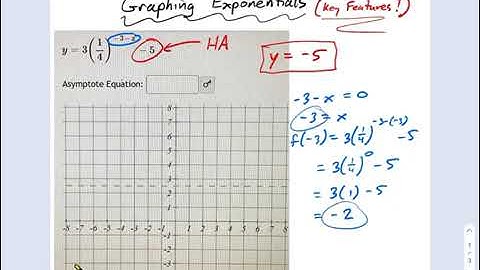 Graphing Exponentials (Key Features!)
y = 3(1/4)^(-3-x) - 5
HA
y = -5
Asymptote Equation:
-3 - x = 0
-3 = x
f(-3) = 3(1/4)^(-3-(-3)) - 5
= 3(1/4)^0 - 5
= 3(1) - 5
= -2
8
7
6
5
4
3
2
1
-8 -7 -6 -5 -4 -3 -2 -1 1 2 3 4 5 6 7 8
-1
-2
-3